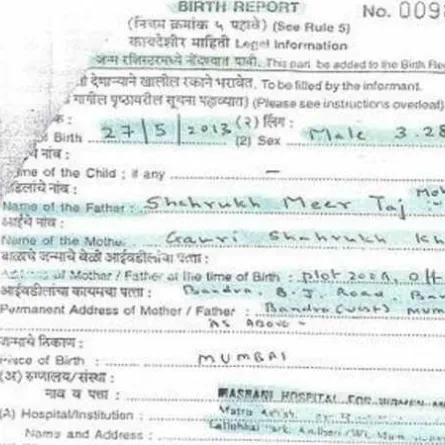 BIRTH REPORT
No. 009
(नियम क्रमांक ५ पहावे) (See Rule 5)
कायदेशीर माहिती Legal Information
जन्म रजिस्टरमध्ये नोंदण्यात यावी. This part be added to the Birth Re
देणाऱ्याने खालील रकाने भरावेत. To be filled by the informant.
मागील पृष्ठावरील सूचना पहाव्यात) (Please see instructions overleaf
Birth 27/5/2013 (२) लिंग :
(2) Sex Male 3.28
नांव :
me of the Child ; if any —
Name of the Father : Shahrukh Meer Taj
आईचे नांव :
Name of the Mothe Gauri Shahrukh Kh
बाळाचे जन्माचे वेळी आईवडीलांचा पत्ता :
of Mother / Father at the time of Birth : plot 200A, off
आईवडीलांचा कायमचा पत्ता : Bandra B. J. Road. Ba
Permanent Address of Mother / Father : Bandra (west) mum
As Above -
जन्माचे ठिकाण :
of Birth : MUMBAI
(अ) रुग्णालय/संस्था :
नाव व पत्ता : MASRANI HOSPITAL FOR WOMEN
(A) Hospital/Institution :
Name and Address :